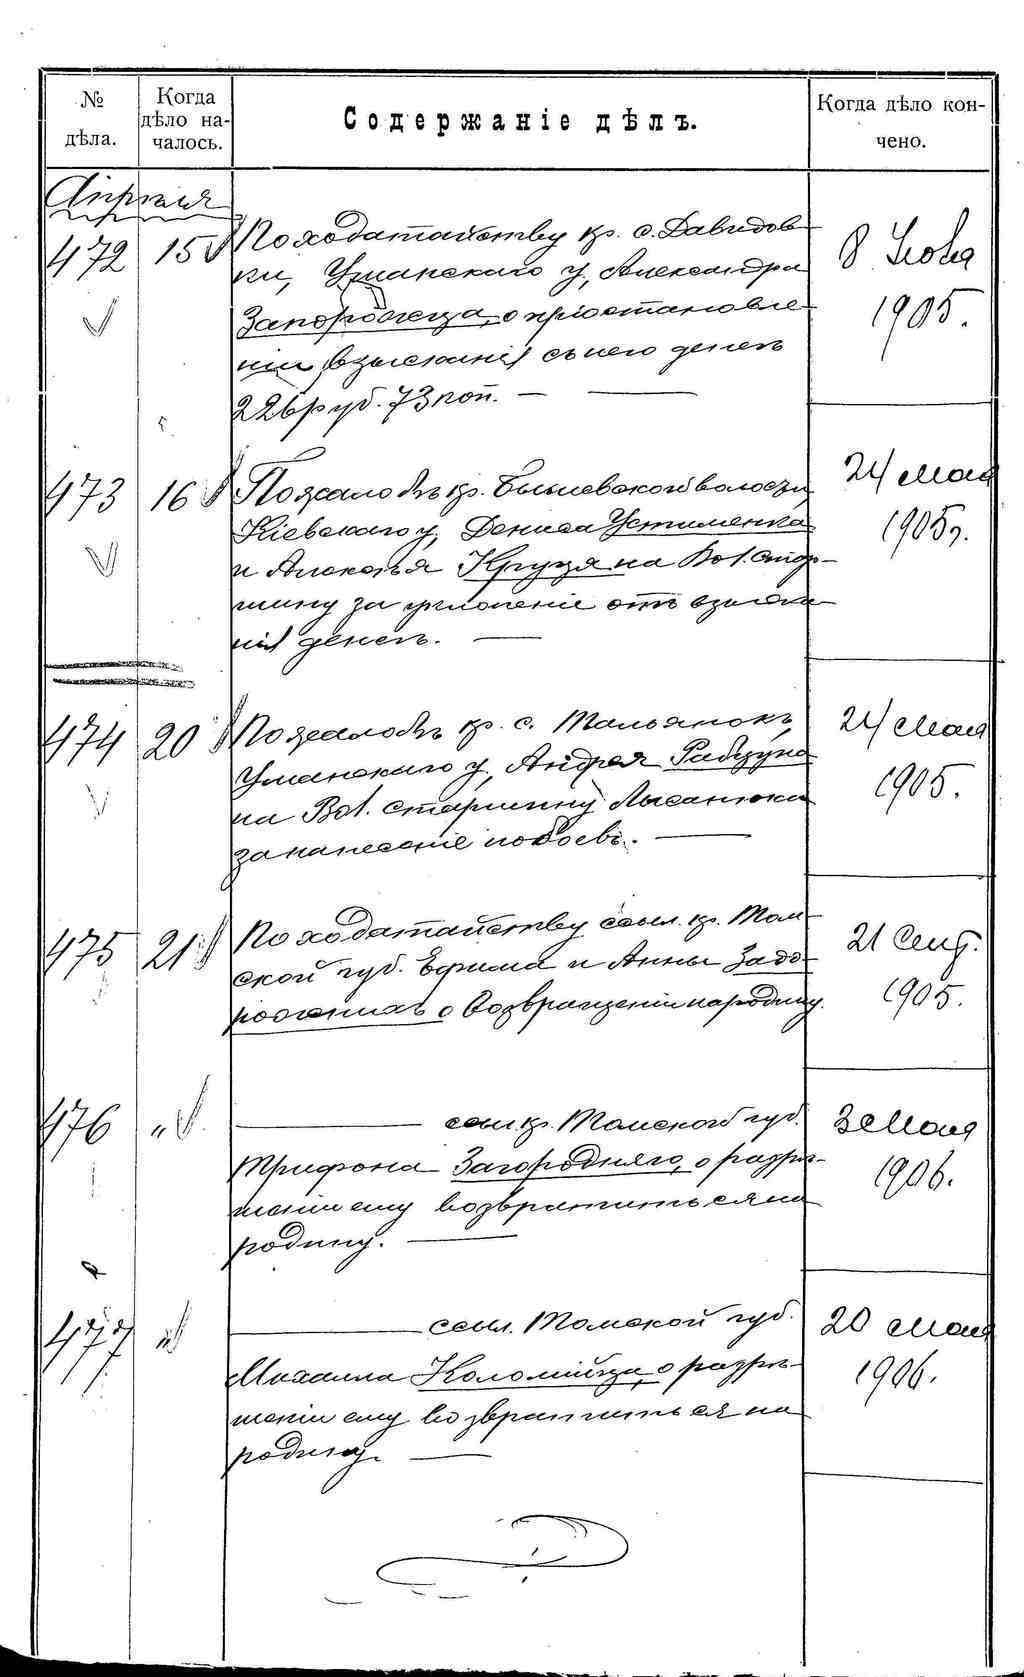 № дѣла.
Когда дѣло началось.
Содержаніе дѣлъ.
Когда дѣло кончено.
Апрѣля
472 15 По ходатайству кр. с. Давидов-
ки, Уманскаго у, Александра
Запорожеца, о пріостановле-
ніи взысканія съ него денегъ
226 руб. 73 коп. —
8 Іюня
1905.
473 16 По жалобѣ кр. Бышевской волости,
Кіевскаго у, Дениса Устименка
и Алексѣя Круця на Вол. Стар-
шину за уклоненіе отъ взыска-
нія денегъ. —
24 Мая
1905 г.
474 20 По жалобѣ кр. с. Тальянокъ,
Уманскаго у, Андрея Рабцуна
на Вол. старшину Лысанюка
за нанесеніе побоевъ. —
24 Мая
1905.
475 21 По ходатайству ссыл. кр. Том-
ской губ. Ефима и Анны Задо-
рожнихъ о возвращеніи на родину.
21 Сент.
1905.
476 " — ссыл. кр. Томской губ.
Трифона Загородняго, о разрѣ-
шеніи ему возвратиться на
родину. —
3 Мая
1906.
477 " — ссыл. Томской губ.
Михаила Коломійца, о разрѣ-
шеніи ему возвратиться на
родину. —
20 Мая
1906.